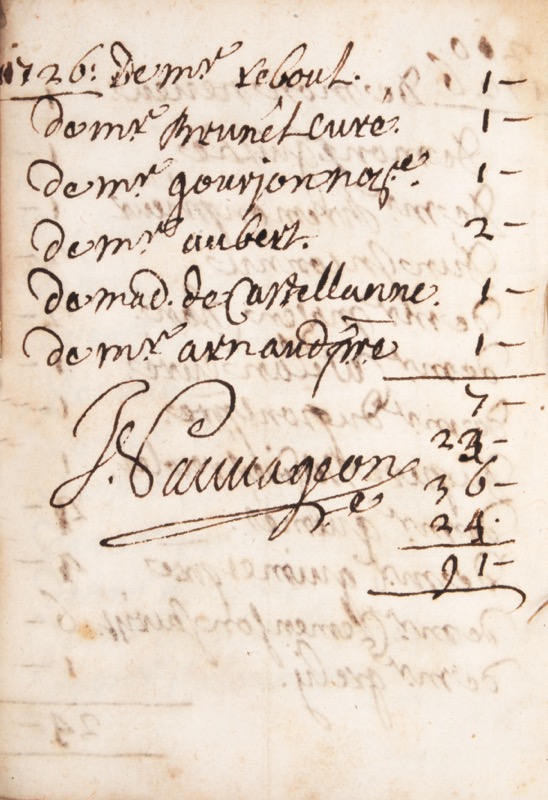 1726: de mr. rebout. 1-
de mr. Brunet cure. 1-
de mr. gourjon 1-
de mrs. aubert. 2-
de mad. de Castellanne. 1-
de mr. arnaud 1-
7-
24-
J. Sauvageon
36-
24.
91-